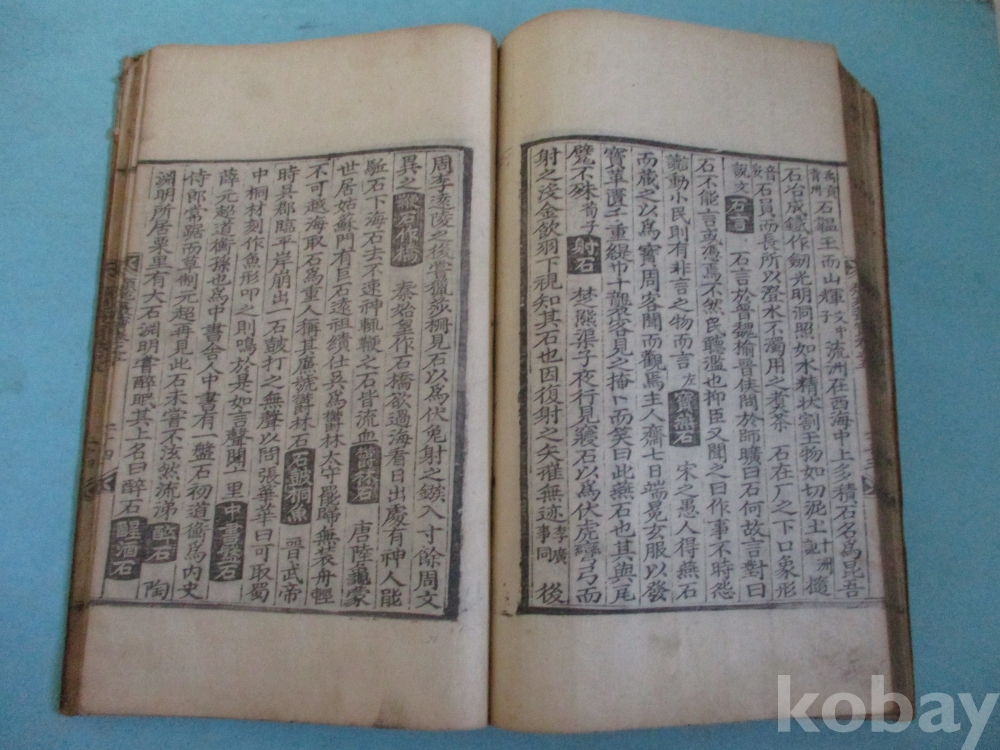 禹貢青州 石韞玉而山輝 文中子 流洲在西海中上多積石名爲昆吾
石冶成鐵作劒光明洞照如水精狀割玉物如切泥土 十洲記 橀
音 石員而長所以澄水不濁用之煮茶 石在厂之下口象形
說文 石言 石言於晉魏榆晉侯問於師曠曰石何故言對曰
石不能言或馮焉不然民聽濫也抑臣又聞之曰作事不時怨
讟動小民則有非言之物而言 左 寶燕石 宋之愚人得燕石
而藏之以爲寶周客聞而觀焉主人齋七日端冕玄服以發
寶革匱千重緹巾十襲客見之掩口而笑曰此燕石也其與瓦
甓不殊 荀子 射石 楚熊渠子夜行見寢石以爲伏虎彎弓而
射之沒金飮羽下視知其石也因復射之矢摧無迹 李廣事同 後
周李遠陵之後嘗獵莎柵見石以爲伏兔射之鏃入寸餘周文
異之 鞭石作橋 秦始皇作石橋欲過海看日出處有神人能
駈石下海石去不速神輒鞭之石皆流血 鬱林石 唐陸龜蒙
世居姑蘇門有巨石遠祖績仕吳爲鬱林太守罷歸無裝舟輕
不可越海取石爲重人稱其廉號鬱林石 石鼓桐魚 晋武帝
時吳郡臨平岸崩出一石鼓打之無聲以問張華華曰可取蜀
中桐材刻作魚形叩之則鳴於是如言聲聞 里 中書盤石
薛元超道衡孫也爲中書舍人中書有一盤石初道衡爲內史
侍郎常踞而草制元超再見此石未嘗不泫然流涕 醉石 陶
淵明所居栗里有大石淵明 醉眠其上名曰醉石 醒酒石
kobay